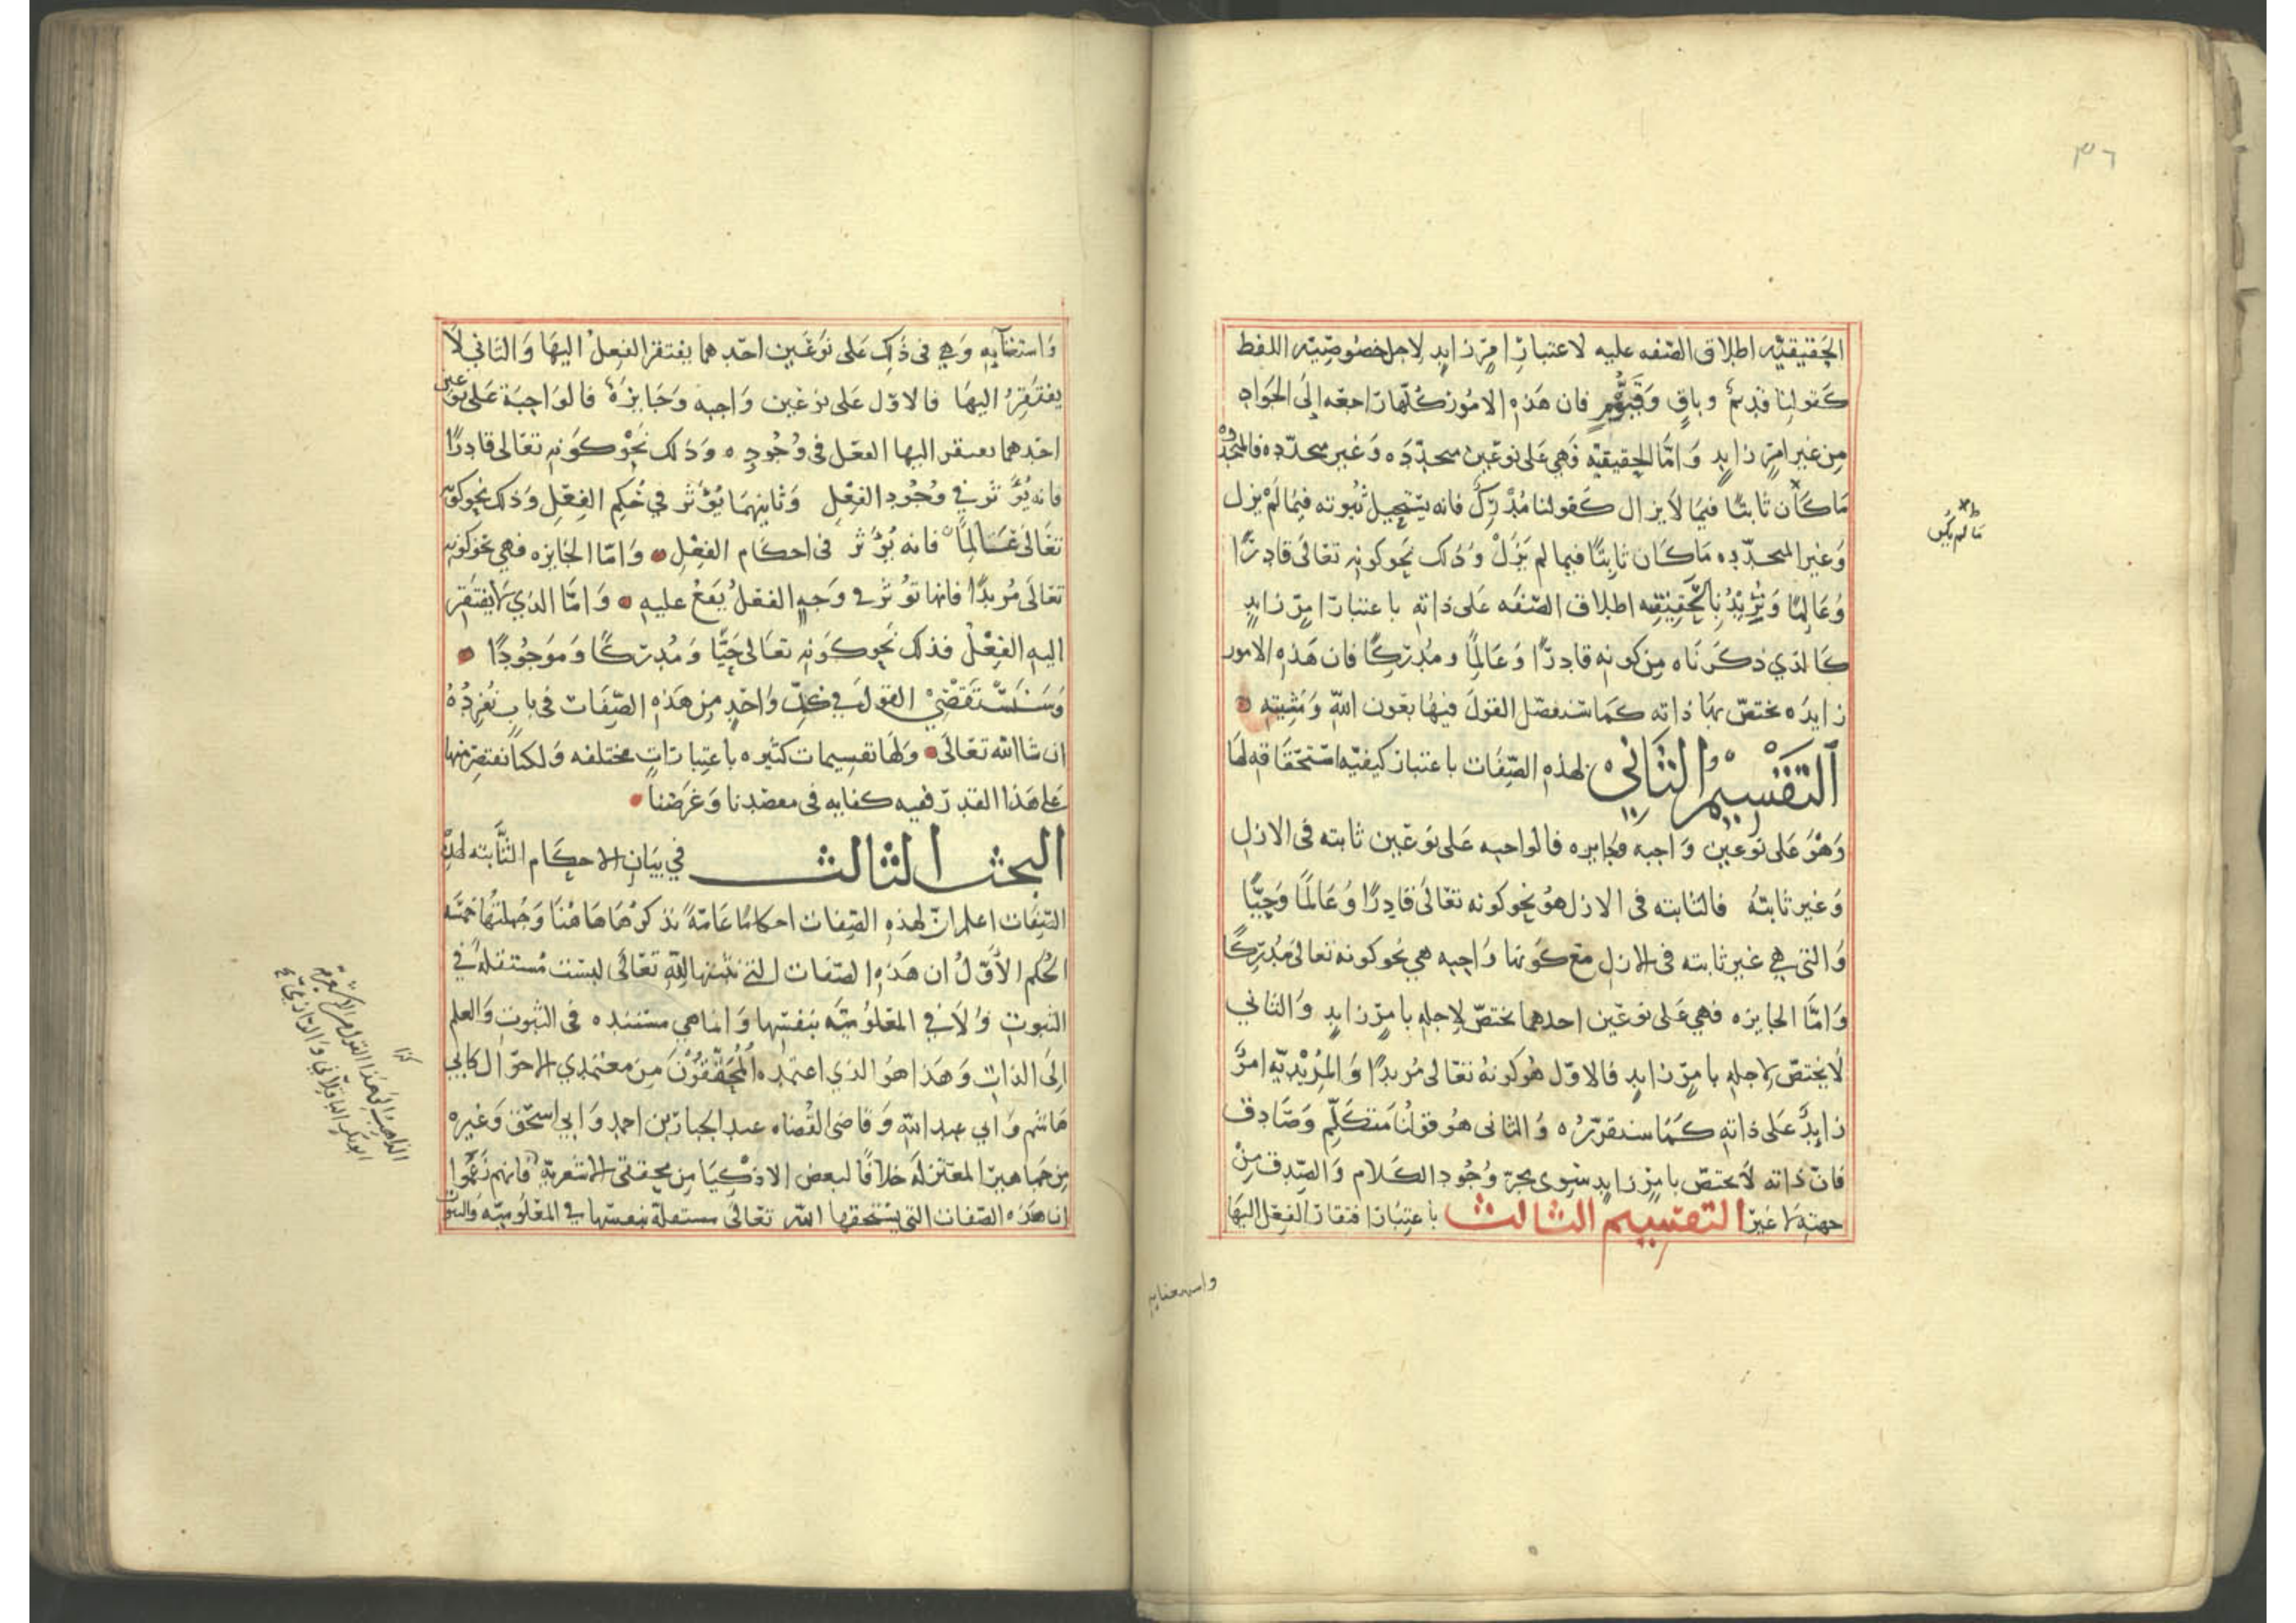 ٣٦
الحقيقيه اطلاق الصفه عليه لا عتبار امر زايد لاجل خصوصيه اللفظ
كقولنا قديم وباقٍ وقيوم فان هذه الامور كلها راجعه الى الجواد
من غير امر زايد وَامّا الحقيقيه فَهي عَلى نوعَين متجدّده وَغير متجدّده فالمتجدده
مَا كَان ثابتًا فيمَا لاَ يزال كَقولنا مُدْرِكٌ فانه يَسْتحيل ثُبوته فيمَا لَمْ يزل
ما لم يكن
وَغير المتجدّده مَا كَان ثابِتًا فيما لم يَزَلْ وَذلك نحو كونه تعَالَى قادِرًا
وَعَالِمًا وَنُرِيْدُ بِالحَقِيْقِيه اطلاق الصّفَه عَلى ذاته باعتبار امرٍ زايدٍ
كَالذي ذكَرنَاه مِن كونه قادرًا وَعَالِمًا ومُدْرِكًا فان هَذه الامور
زايدَه تختصّ بهَا ذاته كَمَا سنفصّل القولَ فيهَا بعَون اللّه وَمَشِيّته
اَلتقْسِيْمُ الثَّانِيْ لهذهِ الصِّفَات باعتبار كيفيّه اسْتحقَاقه لهَا
وَهُوَ عَلى نَوعين وَاجبه وَجَايزه فالواجبه عَلى نوعَين ثابته فى الازل
وَغير ثابتَه فالثابته فى الازل هُوَ نحو كونه تعَالَى قادِرًا وَعَالمًا وَحَيًّا
وَالتي هي غير ثابته فى الازل مَع كَونها وَاجبه هي نحو كونه تعالى مُدْرِكًا
وَامّا الجايزه فهي عَلى نوعَين احدهما يختصّ لاِجلهِ بامرٍ زايدٍ وَالثاني
لاَ يختصّ لاجله بامرٍ زايد فالاوّل هُو كونه تعَالى مُريدًا وَالمُرِيْديّه امرٌ
زايدٌ عَلى ذاتهِ كَمَا سنقرّره وَالثانى هُو قولُنا مَتكَلّم وَصَادِق
فانّ ذاته لاَ يختصّ بامرٍ زايدٍ سِوى مجرّد وُجُود الكَلام وَالصّدق مِنْ
جهتهِ لا غير التقسِيم الثالث باعتبار افتقار الفِعْل اليهَا
واستغنايه
وَاستغنآيه وَهِي فى ذلِك عَلى نَوعَين احَدهما يفتقر الفِعلُ اليهَا وَالثاني لاَ
يفتَقِرُ اليهَا فالاوّل عَلى نوعَين وَاجبه وَجَايزَة فالوَاجبَة عَلى نوعين
احَدهما يفتقر اليها الفعَل فى وُجُودِه وَذلك نَحْو كَونه تعَالى قادِرًا
فانه يُؤَثر في وُجُود الفِعْلِ وَثانيهمَا يُؤثر في حُكم الفِعْلِ وَذلك نحو كونه
تعَالَى عَالِمًا فانه يُؤثر فى احكَام الفِعْلِ وَامّا الجَايزه فهي نحو كونه
تعَالَى مُريدًا فانها تؤثر فى وَجهٍ الفعلُ يَقعُ عليه وَامّا الذي لا يَفتقر
اليه الفِعْلُ فذلك نَحو كَونه تعَالى حَيًّا وَمُدرَكًا وَمَوجُودًا
وَسَنَسْتَقْضِيْ القولَ في كلِّ وَاحدٍ مِن هَذه الصِّفَات فى باب نُفرِدُهُ
ان شا الله تعَالَى وَلهَا تقسِيمات كثيره باعتبارَاتٍ مختلفه وَلكنا نقتصر منها
عَلى هَذا القدر ففيه كفايه فى مقصَدنا وَغرَضنا
البحث الثالث في بيَانِ الاحكَام الثَّابته لهذه
الصِّفَات اعلم انّ لهذهِ الصِّفات احكامًا عَامّة نذكرُهَا هَاهُنَا وَجُملتهَا خمسَه
الحُكم الأَوّلُ ان هَذه الصّفات التي نثبتها للّهِ تعَالَى ليسَت مُستقله في
الثبوتِ وَلاَ في المعْلُوميّه بنفسِهَا وَانما هي مستنده فى الثبوتِ وَالعلم
اِلَى الذاتِ وَهَذا هوَ الذي اعتمدَه المُحَقّقُونَ مِن معتمدي الاحوَال كابي
هَاشم وَابي عبد اللّه وَقاضى القُضاه عبد الجبار بن احمد وَابي اسحَق وَغيره
مِن جَماهير المعتزله خلافًا لبعض الاذكيَا مِن محققي الاشعريّه فانهم زَعَمُوا
ان هَذه الصّفات التي يسْتحقها اللّه تعَالى مستقلّة بنفسهَا في المعْلُوميّه وَالثبوت
كذا
الذاهب الى هذا القول من الاشعريّه
ابو بكر الباقلاني والرازي